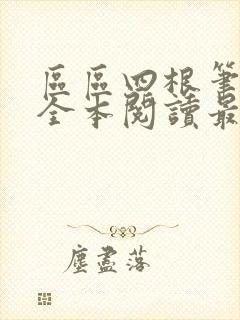 區區四根筆
全本閱讀最
塵盡落